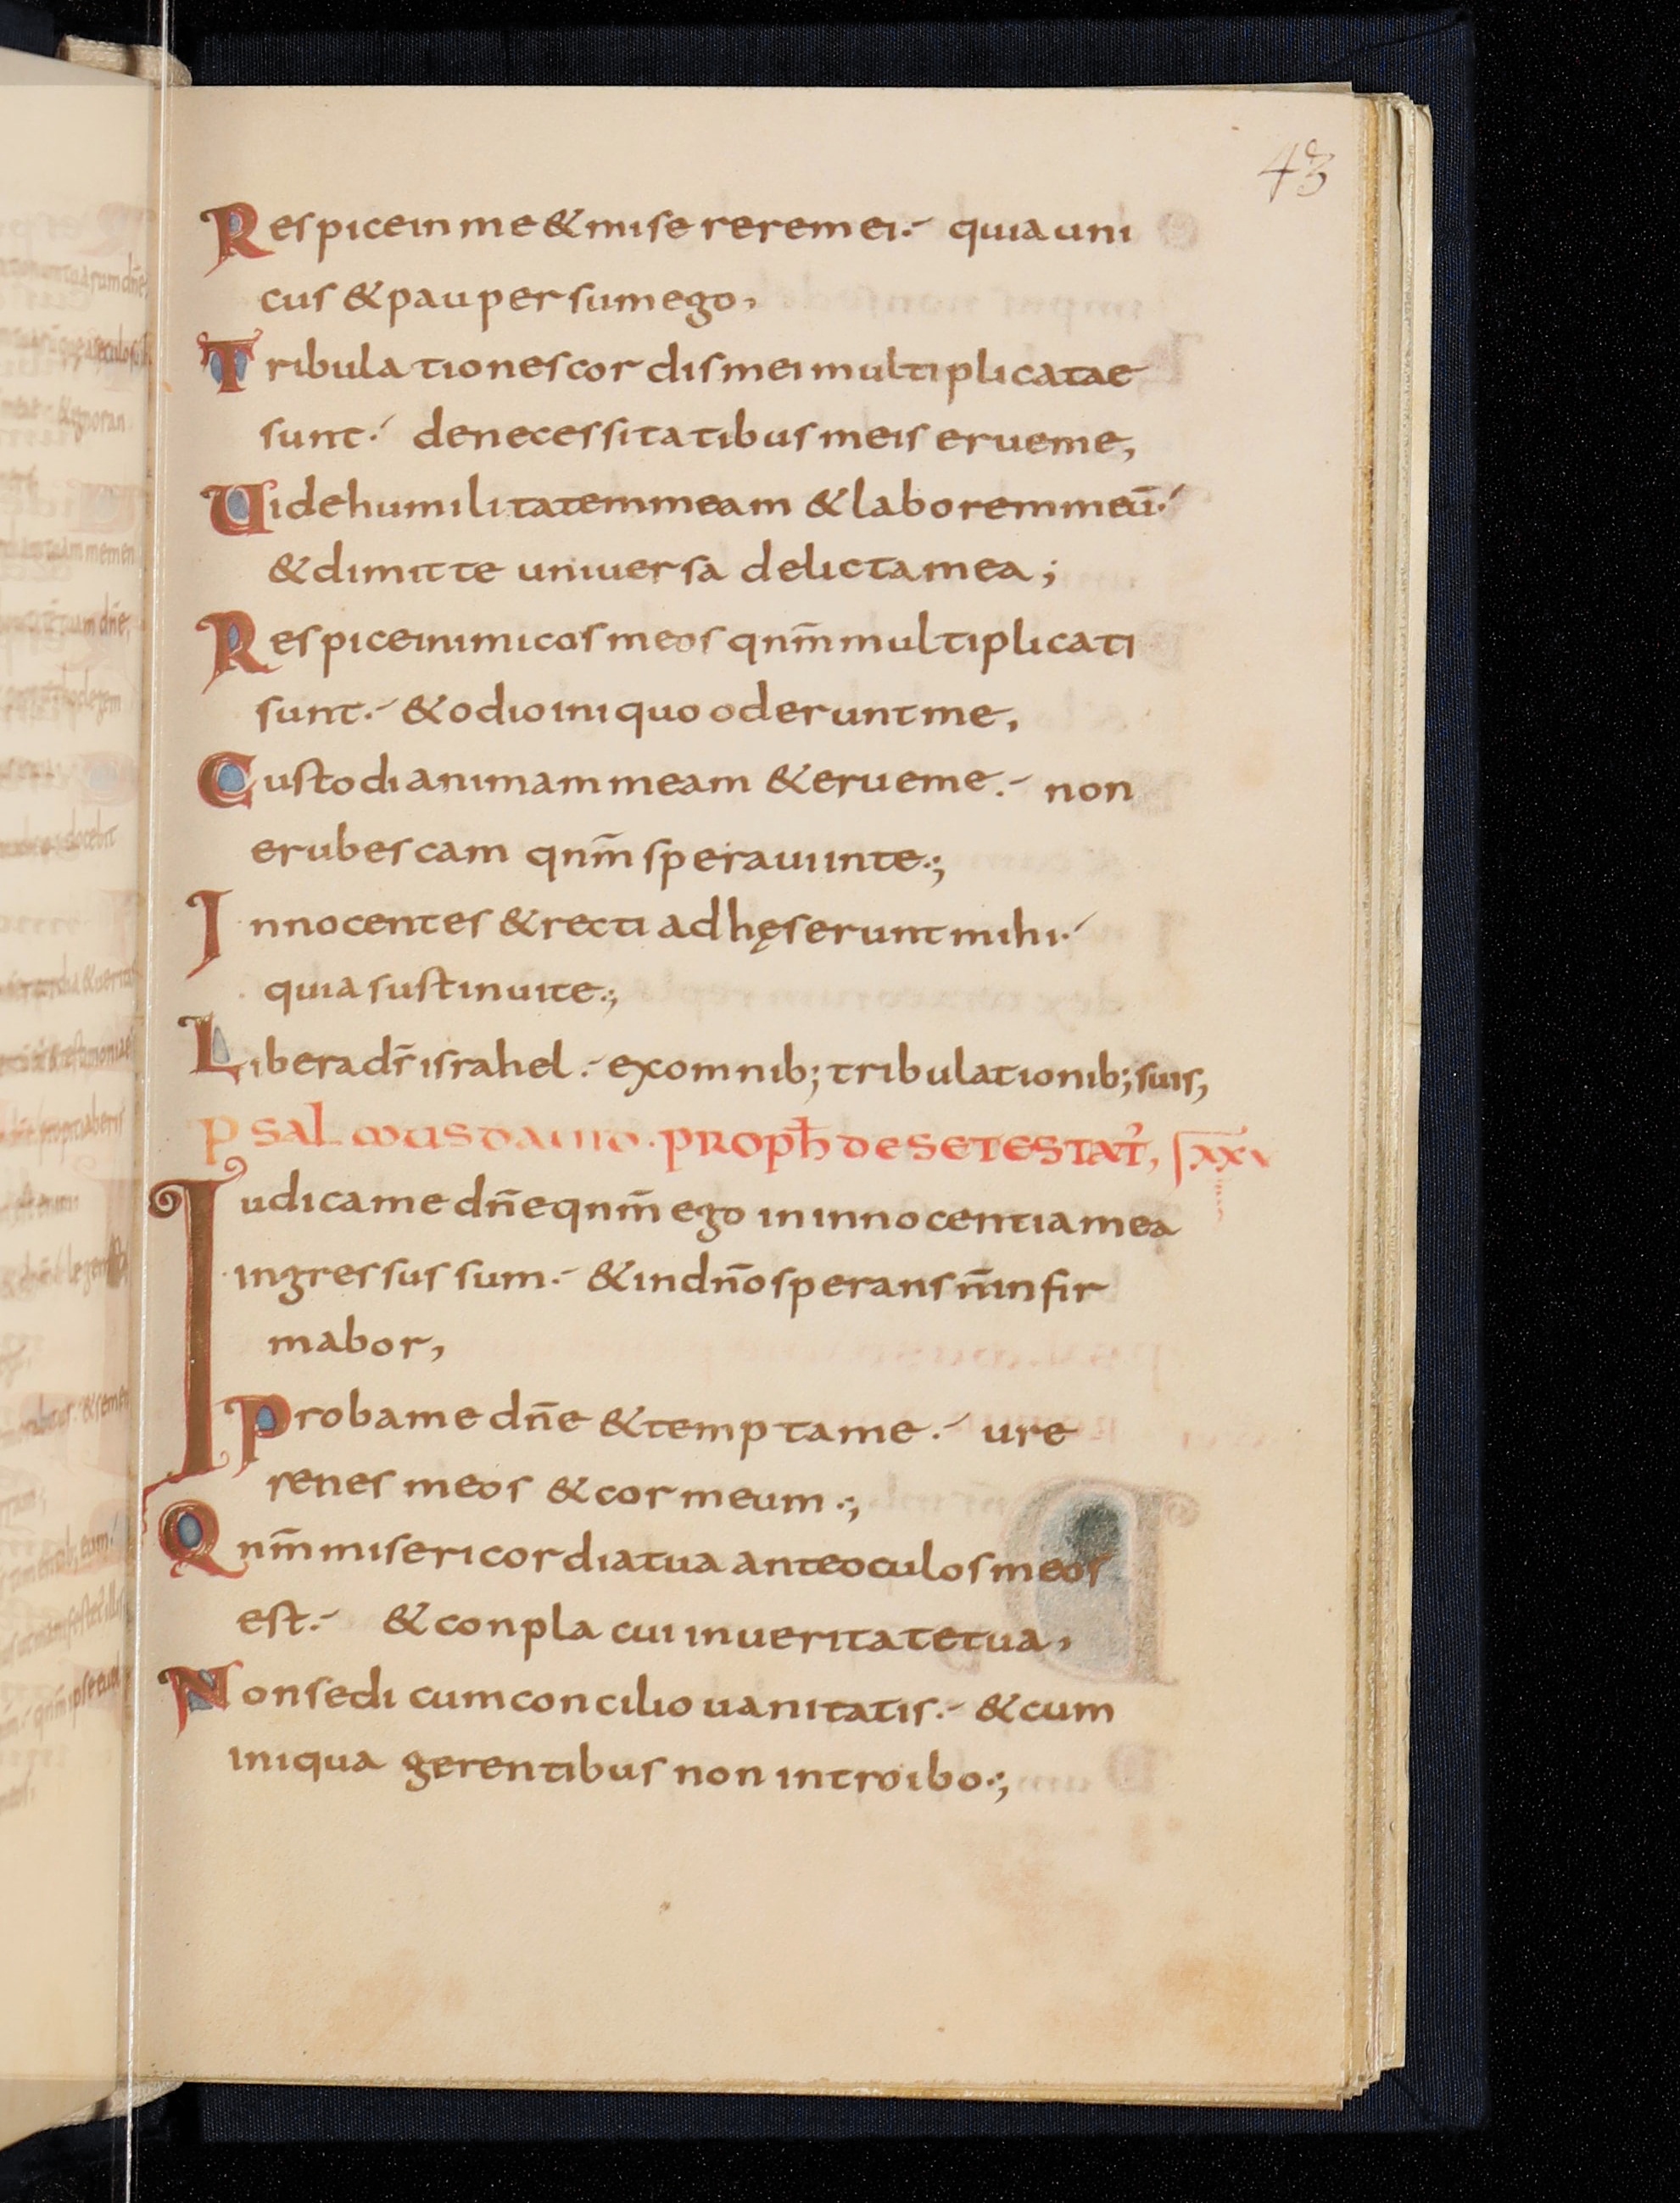 43
Respice in me & miserere mei quia uni
cus & pauper sum ego,
Tribulationes cordis mei multiplicatae
sunt de necessitatibus meis erue me,
Uide humilitatem meam & laborem meū
& dimitte uniuersa delicta mea;
Respice inimicos meos qnm̄ multiplicati
sunt & odio iniquo oderunt me,
Custodi animam meam & erue me non
erubescam qnm̄ speraui in te;
Innocentes & recti adhęserunt mihi
quia sustinui te;
Libera ds̄ israhel ex omnib; tribulationib; suis,
psalmus dauid proph̄ de se testat̄,
Iudica me dn̄e qnm̄ ego in innocentia mea
ingressus sum & in dn̄o sperans n̄ infir
mabor,
Proba me dn̄e & tempta me ure
renes meos & cor meum;
Qnm̄ misericordia tua ante oculos meos
est & conplacui in ueritate tua,
Non sedi cum concilio uanitatis & cum
iniqua gerentibus non introibo;